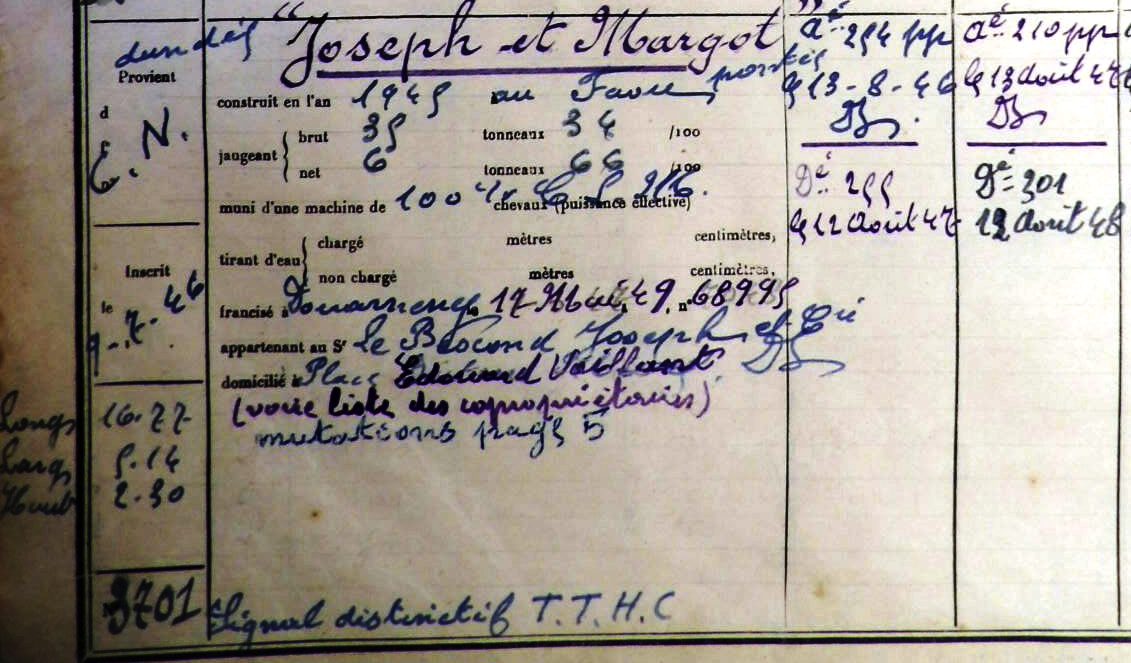 dundée "Joseph et Margot"
Provient
d
C. N.
construit en l'an 1945 au Faou
jaugeant { brut 35 tonneaux 34 /100
net 6 tonneaux 66 /100
muni d'une machine de 100 chevaux (puissance effective)
tirant d'eau { chargé mètres centimètres,
non chargé mètres centimètres,
Inscrit
le 9-7-46
francisé à Douarnenez, 17 Mai 49, n° 68995
appartenant au Sr Le Bescond Joseph et Cie
domicilié à Place Edouard Vaillant
(voir liste des copropriétaires)
mutations page 5
Long 16.77
Larg 5.14
Haut 2.30
3701
Signal distinctif T.T.H.C
Aé 254 pp
le 13-8-46
Dé 255
le 12 Aout 47
Aé 210 pp
le 13 Aout 47
Dé 301
12 Aout 48